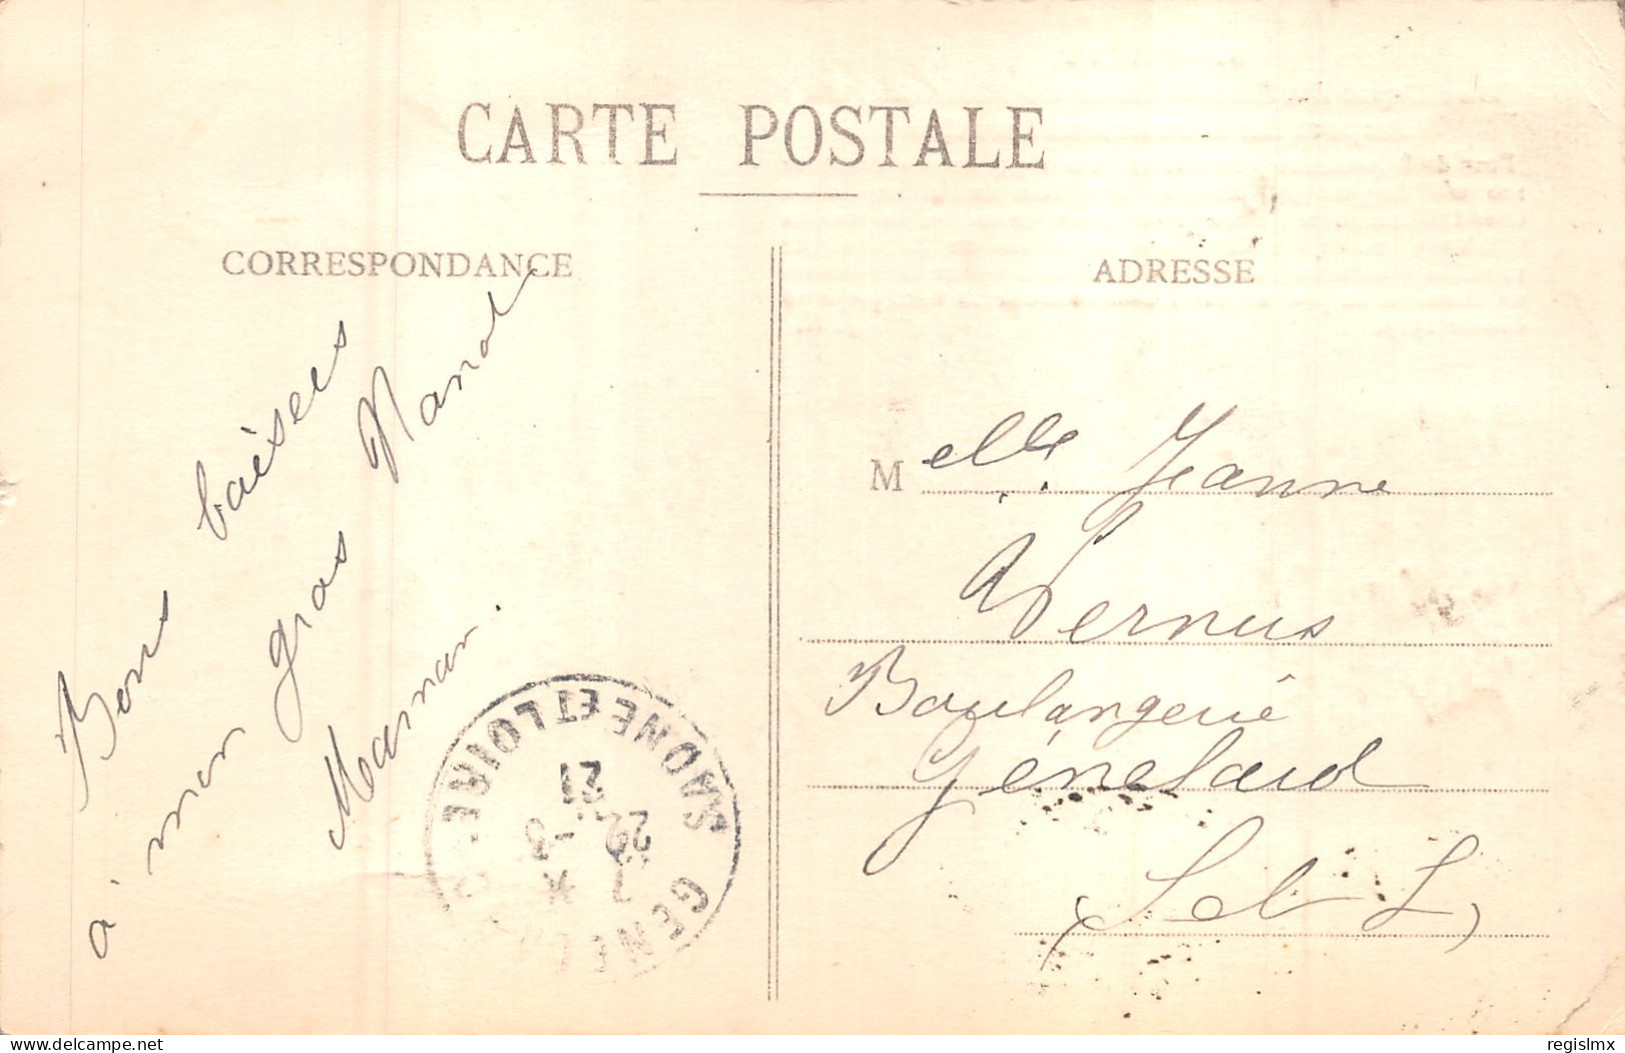 CARTE POSTALE
CORRESPONDANCE
Bons baisers
à mon gros
Maman.
ADRESSE
Melle Jeanne
Vernus
Boulangerie
Génelard
(S et L)
SAONE ET LOIRE
GENELARD
7 *
22 -3
21
delcampe.net
regislmx